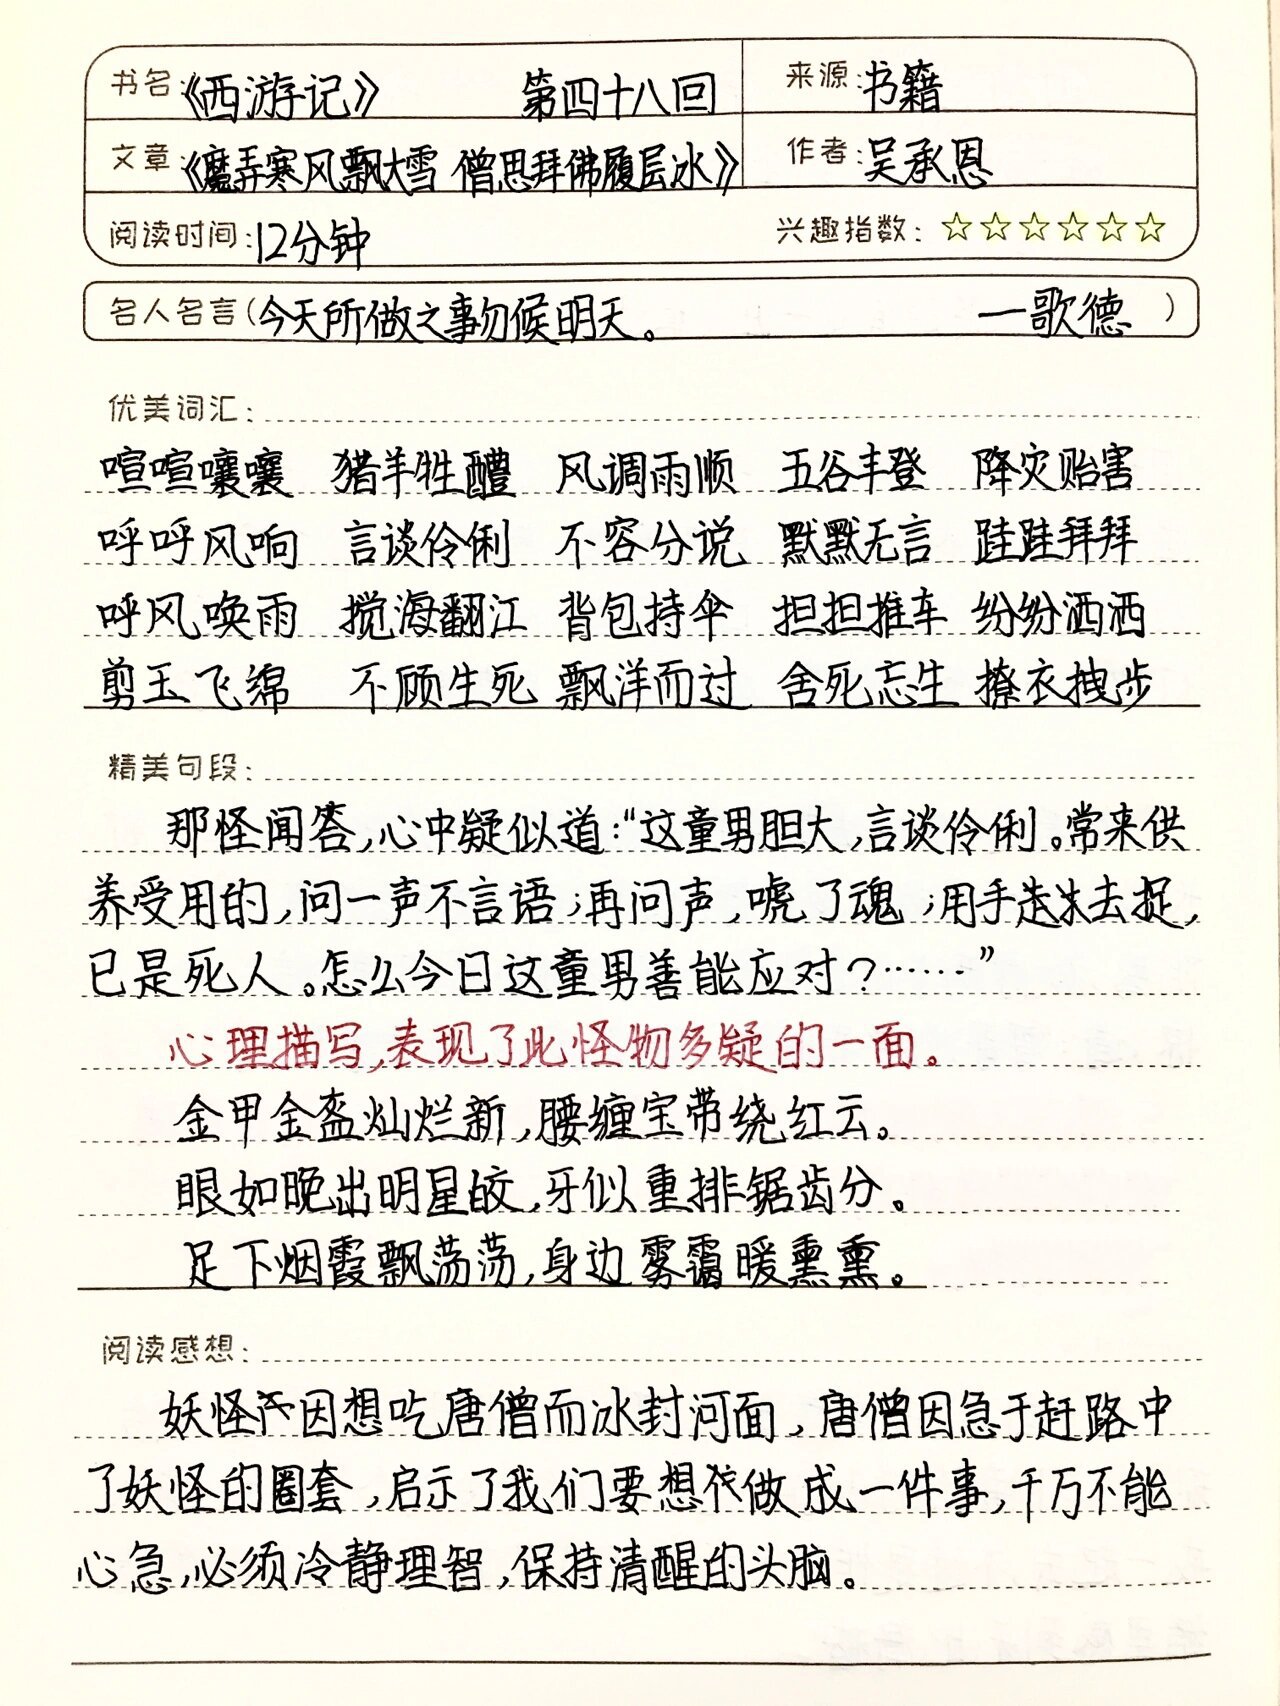 书名:《西游记》 第四十八回 来源:书籍
文章:《魔弄寒风飘大雪 僧思拜佛履层冰》 作者:吴承恩
阅读时间:12分钟 兴趣指数:☆☆☆☆☆☆
名人名言(今天所做之事勿候明天。 —歌德 )
优美词汇:
喧喧嚷嚷 猪羊牲醴 风调雨顺 五谷丰登 降灾贻害
呼呼风响 言谈伶俐 不容分说 默默无言 跬跬拜拜
呼风唤雨 搅海翻江 背包持伞 担担推车 纷纷洒洒
剪玉飞绵 不顾生死 飘洋而过 舍死忘生 撩衣拽步
精美句段:
那怪闻答,心中疑似道:“这童男胆大,言谈伶俐。常来供
养受用的,问一声不言语;再问声,唬了魂;用手去捉,
已是死人。怎么今日这童男善能应对?……”
心理描写,表现了此怪物多疑的一面。
金甲金盔灿烂新,腰缠宝带绕红云。
眼如晚出明星皎,牙似重排锯齿分。
足下烟霞飘荡荡,身边雾霭暖熏熏。
阅读感想:
妖怪因想吃唐僧而冰封河面,唐僧因急于赶路中
了妖怪的圈套,启示了我们要想做成一件事,千万不能
心急,必须冷静理智,保持清醒的头脑。